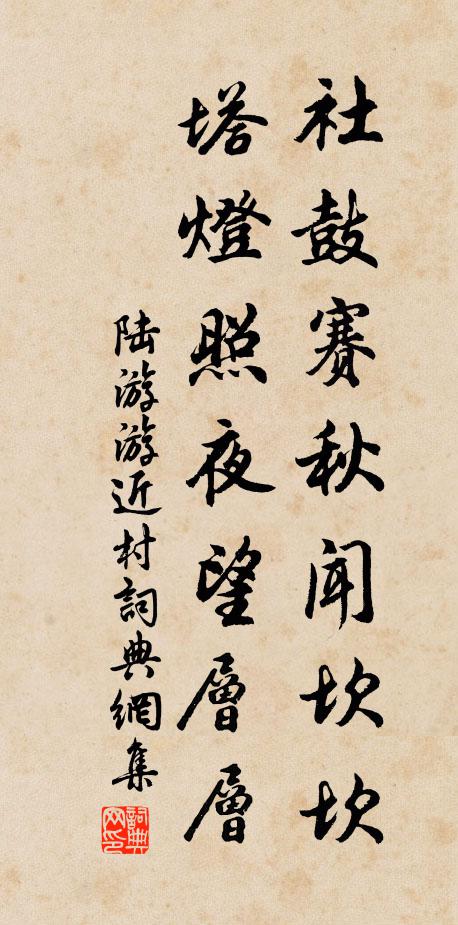 社鼓賽秋聞坎坎
塔燈照夜望層層
陆游游近村詞典網集
詞典網印